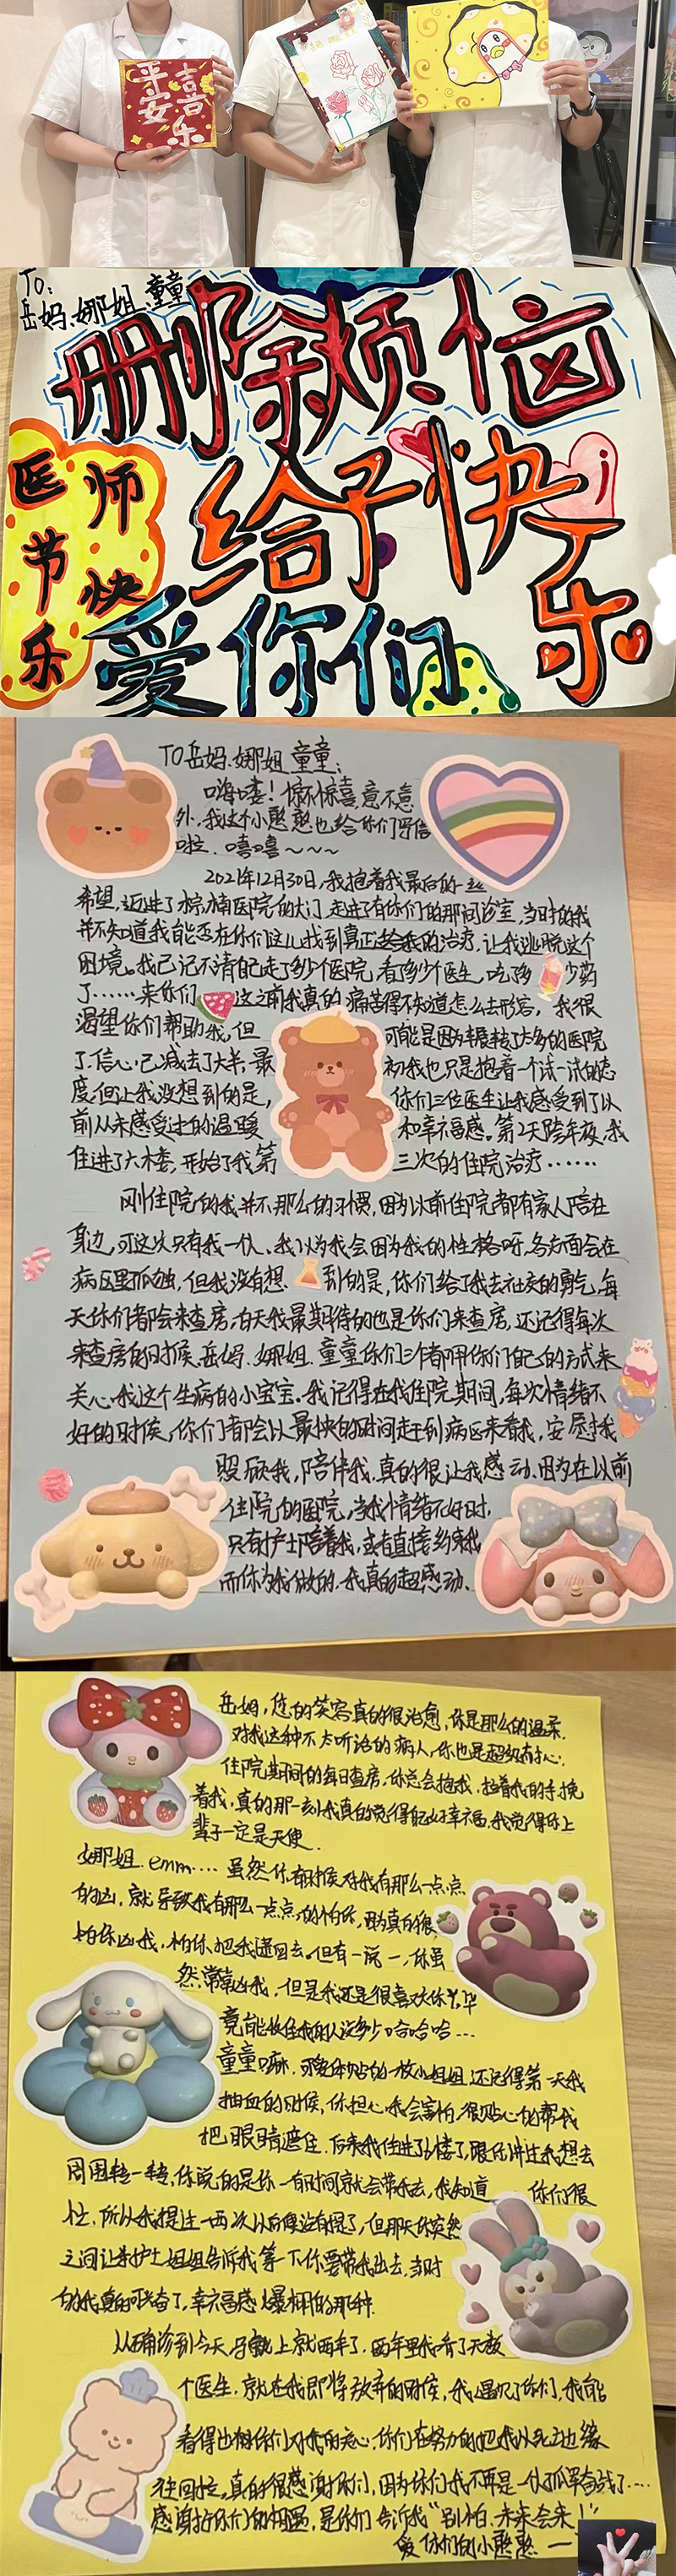 平安
喜乐
TO:
岳妈、娜姐、童童
删除烦恼
给予快乐
爱你们
医师
节快
乐
TO岳妈、娜姐、童童:
嗨喽！惊不惊喜,意不意
外,我这个小憨憨也给你们写信
啦. 嘻嘻~~~
2021年12月30日,我抱着我最后的一丝
希望,迈进了棕榈医院的大门,走进了有你们的那间诊室,当时的我
并不知道我能否在你们这儿找到真正适合我的治疗,让我逃脱这个
困境。我已记不清自己走了多少个医院,看了多少个医生,吃了多少药
了……来你们这之前我真的痛苦得不知道怎么去形容,我很
渴望你们帮助我,但可能是因为辗转了太多的医院
了.信心已减去了大半,最初我也只是抱着一个试一试的态
度,但让我没想到的是,你们三位医生让我感受到了以
前从未感受过的温暖和幸福感。第2天跨年夜,我
住进了六楼,开始了我第三次的住院治疗……
刚住院的我并不那么的习惯,因为以前住院都有家人陪在
身边,可这次只有我一个人,我以为我会因为我的性格呀,各方面会在
病区里孤独,但我没有想到的是,你们给了我去社交的勇气,每
天你们都会来查房,白天我最期待的也是你们来查房,还记得每次
来查房的时候,岳妈、娜姐、童童你们三个都用你们自己的方式来
关心我这个生病的小宝宝.我记得在我住院期间,每次情绪不
好的时候,你们都会以最快的时间赶到病区来看我,安慰我
照顾我,陪伴我,真的很让我感动.因为在以前
住院的医院,当我情绪不好时,
只有护士陪着我,或者直接约束我
而你为我做的,我真的超感动.
岳妈,您的笑容真的很治愈,你是那么的温柔.
对我这种不太听话的病人,你也是超级有耐心.
住院期间的每日查房,你总会抱我,拉着我的手,挽
着我,真的那一刻我真的觉得自己好幸福,我觉得你上
辈子一定是天使.
娜姐. emm…. 虽然你有时候对我有那么一点点
的凶,就导致我有那么一点点的怕你,因为真的很
怕你凶我,怕你把我退回去.但有一说一,你虽
然常常凶我,但是我还是很喜欢你,毕
竟能收住我的人没多少哈哈哈…
童童嘛,可爱体贴的一枚小姐姐,还记得第一天我
抽血的时候,你担心我会害怕,很贴心的帮我
把眼睛遮住.后来我住进了6楼了,跟你讲过我想去
周围转一转,你说的是你一有时间就会带我去,我知道你们很
忙,所以我提过一两次以后便没有提了,但那天你突然
之间让护士姐姐告诉我等一下你要带我出去,当时
的我真的可兴奋了,幸福感爆棚的那种.
从确诊到今天,马上就两年了.两年里我看了无数
个医生,就在我即将放弃的时候,我遇见了你们,我能
看得出你们对我的关心,你们在努力的把我从死亡边缘
往回拉,真的很感谢你们,因为你们我不再是一个人孤军奋战了….
感谢与你们的相遇,是你们告诉我“别怕,未来会来!”
爱你们的小憨憨一